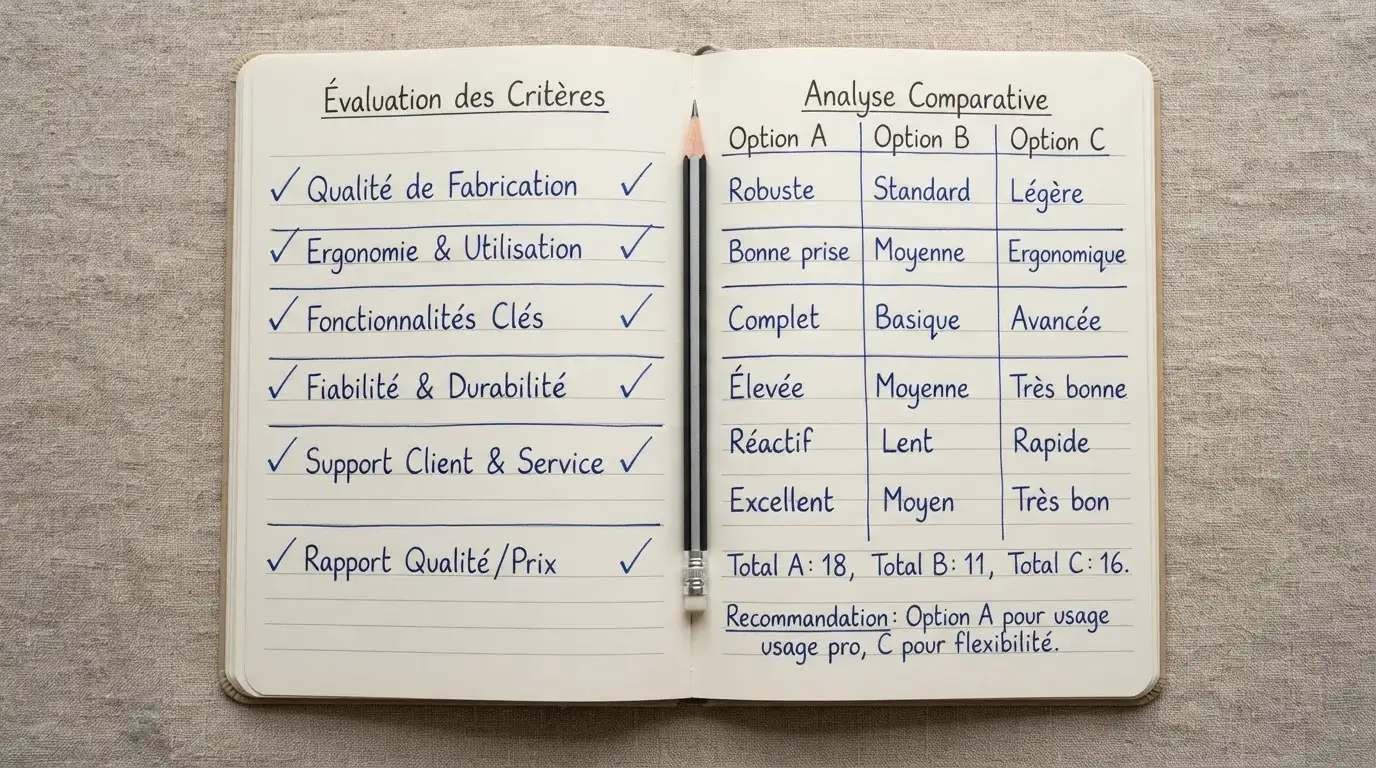 Évaluation des Critères
✓ Qualité de Fabrication ✓
✓ Ergonomie & Utilisation ✓
✓ Fonctionnalités Clés ✓
✓ Fiabilité & Durabilité ✓
✓ Support Client & Service ✓
✓ Rapport Qualité/Prix ✓
Analyse Comparative
Option A Option B Option C
Robuste Standard Légère
Bonne prise Moyenne Ergonomique
Complet Basique Avancée
Élevée Moyenne Très bonne
Réactif Lent Rapide
Excellent Moyen Très bon
Total A: 18, Total B: 11, Total C: 16.
Recommandation: Option A pour usage
usage pro, C pour flexibilité.